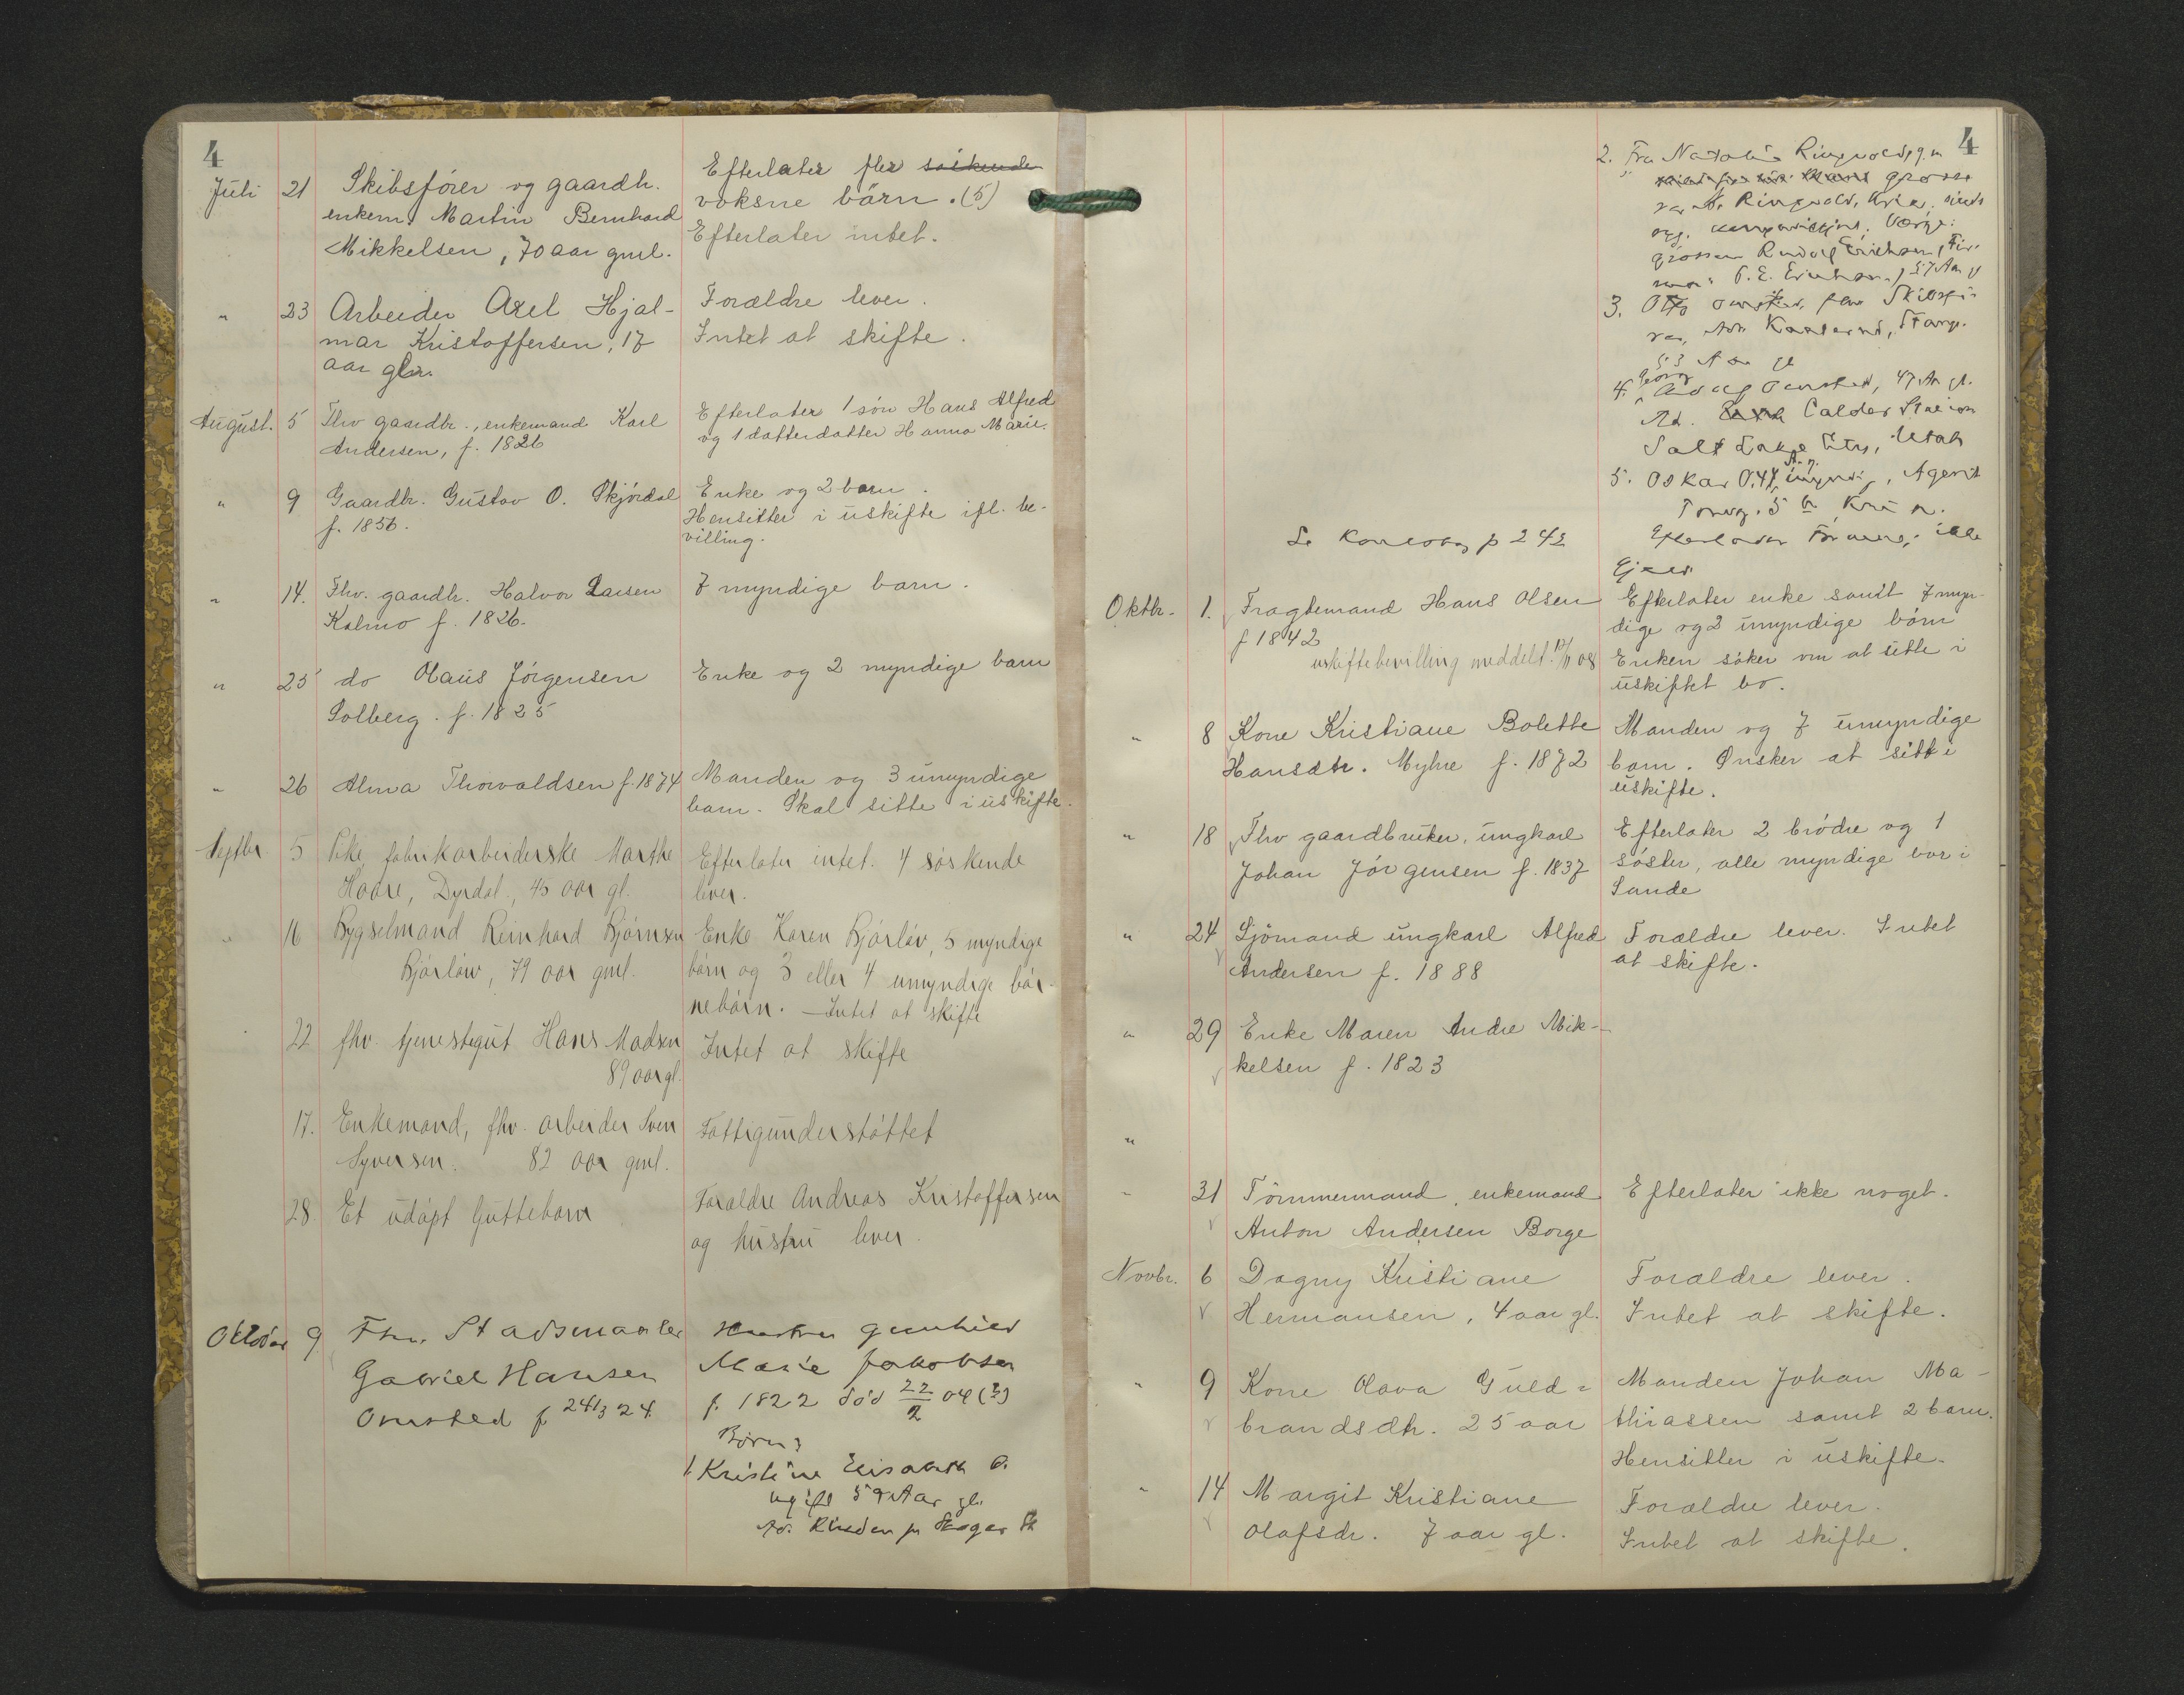 4
Juli 21 Skibsfører og gaardbr.
enkem. Martin Bernhard
Mikkelsen, 70 aar gml.
Efterlater fler søskende
voksne børn. (5)
Efterlater intet.
" 23 Arbeider Axel Hjal-
mar Kristoffersen, 17
aar glr.
Forældre lever.
Intet at skifte.
August. 5 Fhv gaardbr., enkemand Karl
Andersen, f. 1826
Efterlater 1 søn Hans Alfred
og 1 datterdatter Hanna Marie.
" 9 Gaardbr. Gustav O. Skjørdal
f. 1856.
Enke og 2 barn.
Hensitter i uskifte ifl. be-
villing.
" 14. Fhv. gaardbr. Halvor Larsen
Kalmo f. 1826.
7 myndige barn.
" 25 do Olaus Jörgensen
Solberg. f. 1825
Enke og 2 myndige barn
" 26 Alma Thorvaldsen f. 1874
Manden og 3 umyndige
barn. Skal sitte i uskifte.
Septbr 5 Pike fabrikarbeiderske Marthe
Haare, Dyrdal., 45 aar gl.
Efterlater intet. 4 søskende
lever.
" 16 Bygselmand Reinhard Bjørnsen
Bjørløv, 79 aar gml.
Enke Karen Bjørløv, 5 myndige
børn og 3 eller 4 umyndige bør-
nebørn. – Intet at skifte
22 fhv. tjenestegut Hans Madsen
89 aar gl.
Intet at skifte
17. Enkemand, fhv. arbeider Sven
Syversen. 82 aar gml.
Fattigunderstøttet
28. Et udøpt Guttebarn
Forældre Andreas Kristoffersen
og hustru lever.
Oktober 9 Fhv. Stadsmægler
Gabriel Hansen
Omsted f 24/3 24.
Hustru Gunhild
Marie Jakobsen
f. 1822 död 22/2 04 (?)
Börn:
1. Kristine Elisabeth O.
ugift 59 Aar gl.
4
2. Fru Ringvold, g. m.
grosse
rer Ringvold, Kr.a,
Værge:
grosserer Rudolf Erichsen, Fir-
ma: Erichsen, 57 Aar gl
3. Otto Omsted, fhv Skibsfø-
rer,
53 Aar gl
4. Georg Adolf Omsted, 47 Aar gl.
Ad. Calder Station
Salt Lake City, Utah
5. Oskar O, 47 A. g. , Agent
Torvg. 5 b, Kr.a.
Efterlader Formue; ikke
Ejend.
Se p 242
Oktbr. 1. Fragtemand Hans Olsen
f 1842
uskiftebevilling meddelt 17/11 08
Efterlater enke samt 7 myn-
dige og 2 umyndige børn
Enken søker om at sitte i
uskiftet bo.
" 8 Kone Kristiane Bolette
Hansdtr. Myhre f. 1872
Manden og 7 umyndige
barn. Ønsker at sitte i
uskifte.
" 18 Fhv gaardbruker, ungkarl
Johan Jörgensen f. 1837
Efterlater 2 brødre og 1
søster, alle myndige bor i
Sande
" 24 Sjømand ungkarl Alfred
Andersen f. 1888
Forældre lever. Intet
at skifte.
" 29 Enke Maren Andre Mik-
kelsen f. 1823
"
" 31 Tømmermand, enkemand
Anton Andersen Borge
Efterlater ikke noget.
Novbr. 6 Dagny Kristiane
Hermansen, 4 aar gl.
Forældre lever.
Intet at skifte.
" 9 Kone Olava Guld=
brandsdtr. 25 aar
Manden Johan Ma-
thiassen samt 2 barn.
Hensitter i uskifte.
" 14 Margit Kristiane
Olafsdr. 7 aar gl.
Forældre lever.
Intet at skifte.